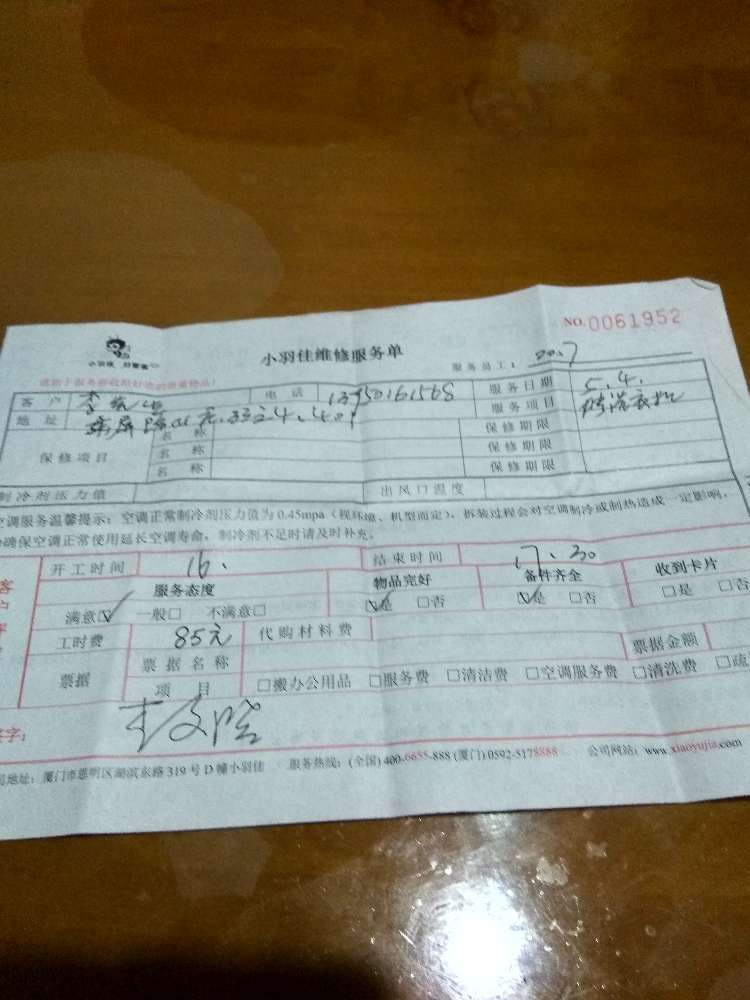 NO.0061952
小羽佳 好管家
小羽佳维修服务单
服务员工：2007
请您于服务前收拾好您的贵重物品！
客户 李 电话 13950161568 服务日期 5.4.
地址 服务项目 洗衣机
保修项目 名称 保修期限
名称 保修期限
名称 保修期限
制冷剂压力值 出风口温度
空调服务温馨提示：空调正常制冷剂压力值为 0.45mpa（视环境、机型而定），拆装过程会对空调制冷或制热造成一定影响，
确保空调正常使用延长空调寿命，制冷剂不足时请及时补充。
开工时间 16. 结束时间 17.30
服务态度 物品完好 备件齐全 收到卡片
满意☑ 一般□ 不满意□ ☑是 □否 ☑是 □否 □是 □否
工时费 85元 代购材料费
票据 票据名称 票据金额
项目 □搬办公用品 □服务费 □清洁费 □空调服务费 □清洗费 □疏
签字：
地址：厦门市思明区湖滨东路 319 号 D 幢小羽佳 服务热线：(全国) 400-6655-888 (厦门) 0592-5178888 公司网站：www.xiaoyujia.com